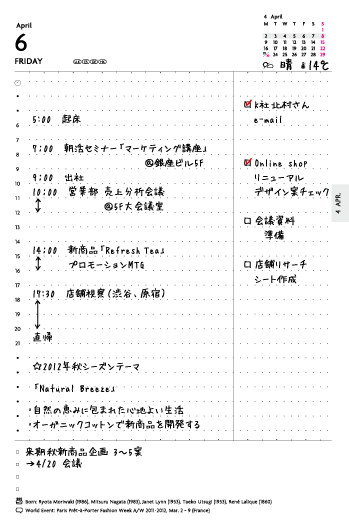 April
6
FRIDAY
4 April
M T W T F S S
1
2 3 4 5 6 7 8
9 10 11 12 13 14 15
16 17 18 19 20 21 22
24 25 26 27 28 29
晴 14℃
5:00 起床
7:00 朝活セミナー「マーケティング講座」
@銀座ビル5F
9:00 出社
10:00 営業部 売上分析会議
@5F大会議室
14:00 新商品「Refresh Tea」
プロモーションMTG
17:30 店舗視察(渋谷、原宿)
直帰
☆2012年秋シーズンテーマ
「Natural Breeze」
・自然の恵みに包まれた心地よい生活
・オーガニックコットンで新商品を開発する
☑ K社北村さん
e-mail
☑ Online shop
リニューアル
デザイン案チェック
□ 会議資料
準備
□ 店舗リサーチ
シート作成
4 APR.
5
6
7
8
9
10
11
12
13
14
15
16
17
18
19
20
21
来期秋新商品企画 3〜5案
→4/20 会議
Born: Ryota Moriwaki (1986), Mitsuru Nagata (1983), Janet Lynn (1953), Taeko Utsugi (1953), René Lalique (1860)
World Event: Paris Prêt-à-Porter Fashion Week A/W 2011-2012, Mar. 2 - 9 (France)